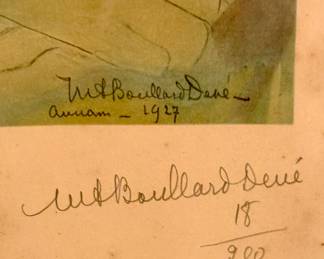 MA Boullard Devé
Annam - 1927
MA Boullard Devé
18
200